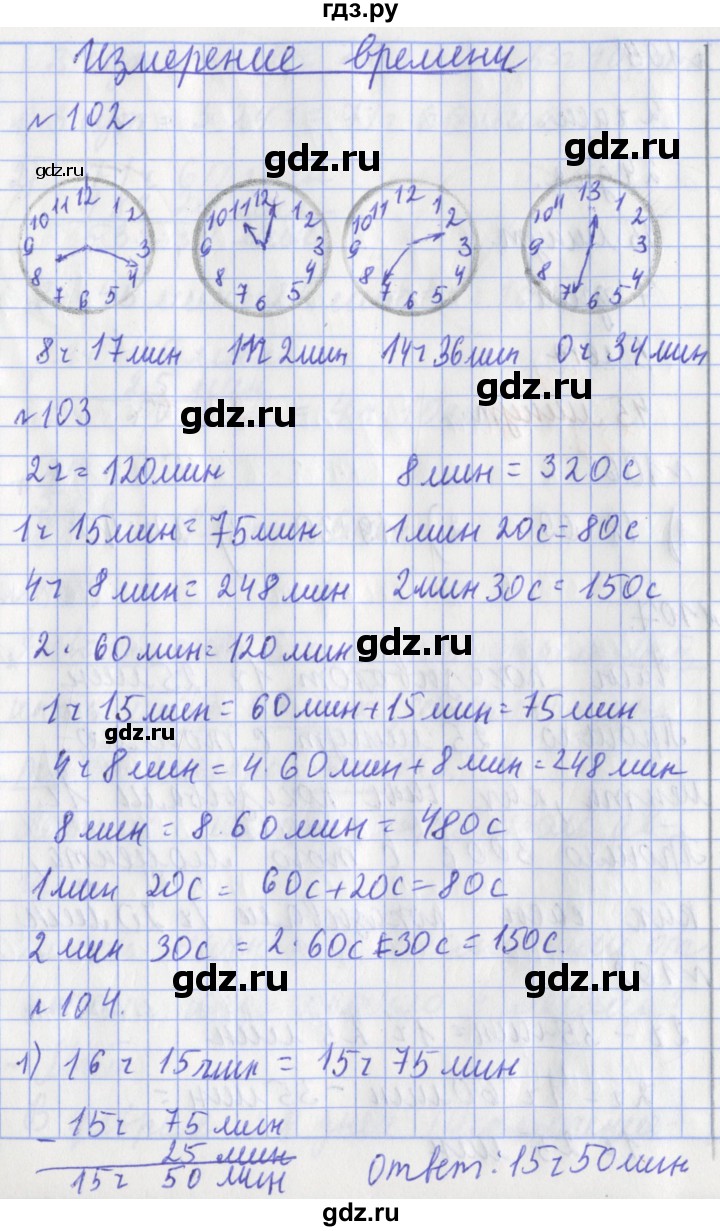 гдз.ру
Измерение времени
№ 102
gdz.ru gdz.ru gdz.ru
12 1 2 3 4 5 6 7 8 9 10 11
12 1 2 3 4 5 6 7 8 9 10 11
12 1 2 3 4 5 6 7 8 9 10 11
13 1 2 3 4 5 6 7 8 9 10 11
8ч 17мин 11ч 2мин 14ч 36мин 0ч 34мин
gdz.ru
№ 103 gdz.ru
2ч = 120мин 8мин = 320с
1ч 15мин = 75мин 1мин 20с = 80с
4ч 8мин = 248мин 2мин 30с = 150с
2 · 60мин = 120мин gdz.ru
1ч 15мин = 60мин + 15мин = 75мин
gdz.ru
4ч 8мин = 4 · 60мин + 8мин = 248мин
8мин = 8 · 60мин = 480с
1мин 20с = 60с + 20с = 80с
2мин 30с = 2 · 60с = 30с = 150с.
gdz.ru gdz.ru
№ 104.
1) 16ч 15мин = 15ч 75мин
- 15ч 75мин
25мин
15ч 50мин Ответ: 15ч 50мин
gdz.ru